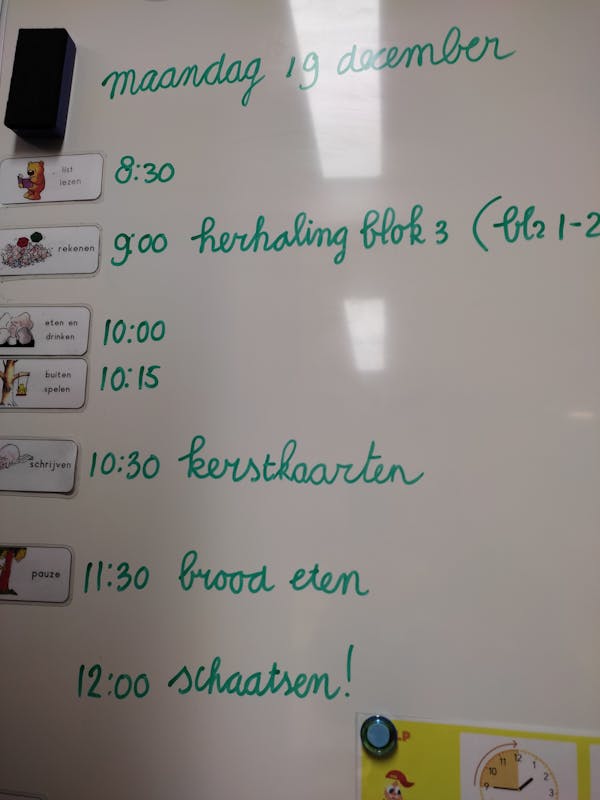 maandag 19 december
list
lezen
8:30
rekenen
9:00 herhaling blok 3 (blz 1-2
eten en
drinken
10:00
buiten
spelen
10:15
schrijven
10:30 kerstkaarten
pauze
11:30 brood eten
12:00 schaatsen!
LP
9 10 11 12 1 2 3